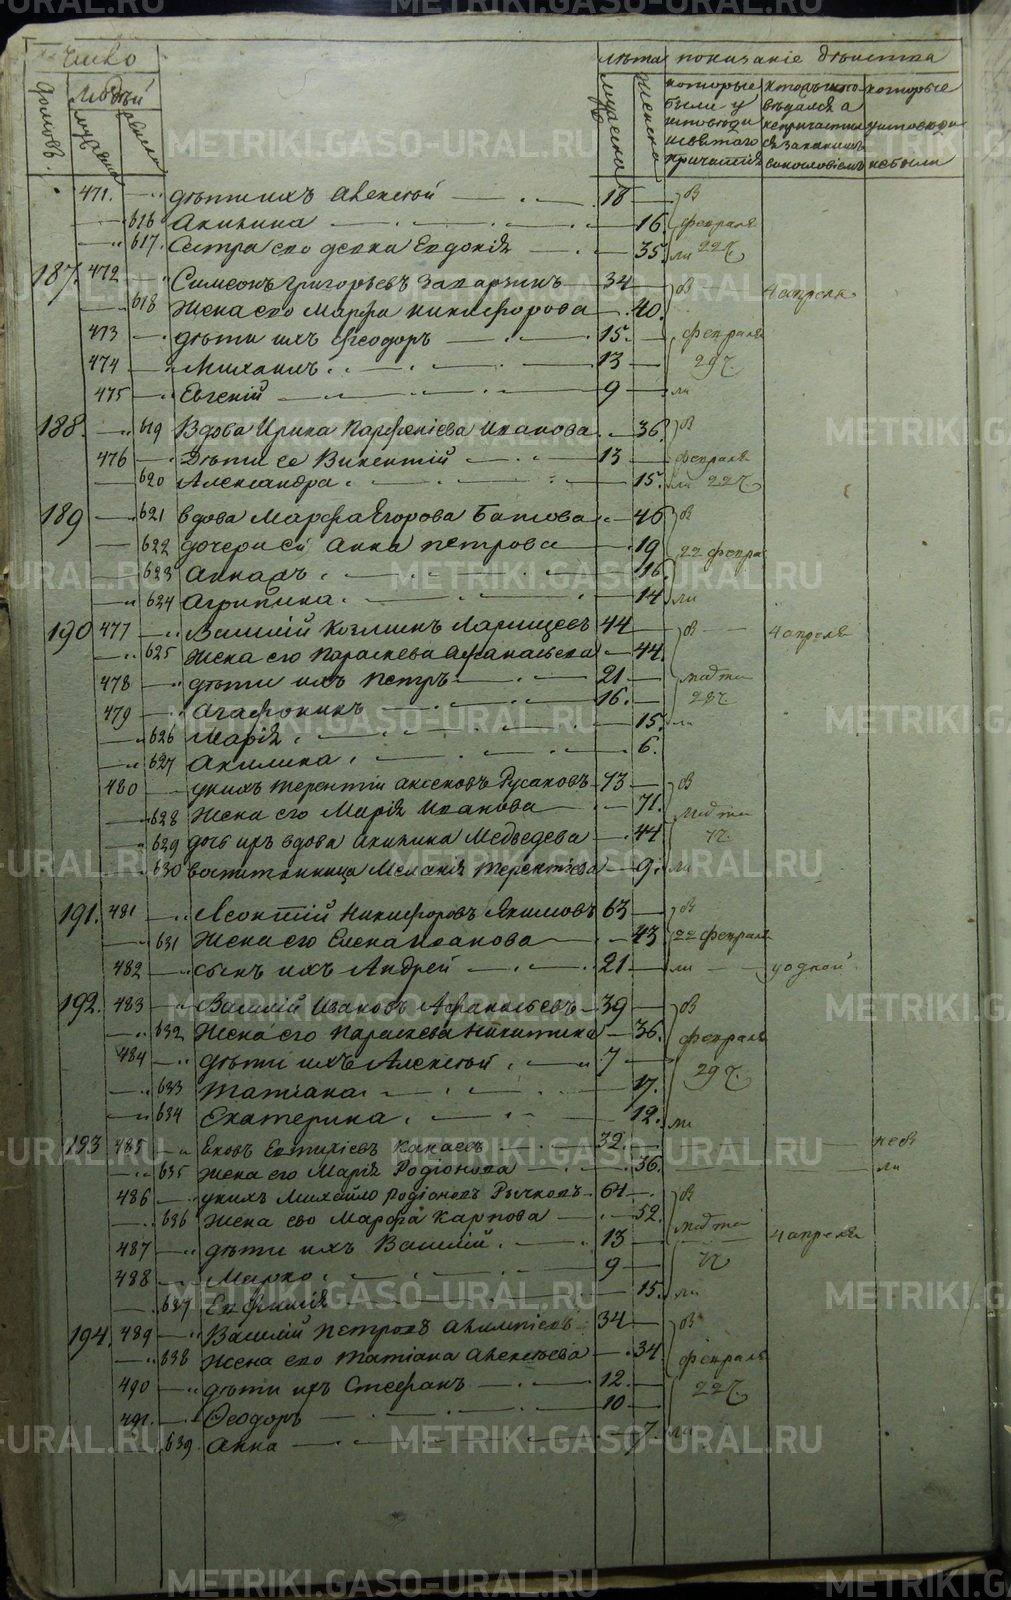 METRIKI.GASO-URAL.RU
число
лѣта
показаніе дѣйства
домовъ.
людей
мужеска
женска
мужеска
женска
которые были у исповѣди и святаго причастія
которые
у исповѣди не были
471. дѣти ихъ Алексѣй 18 Б
616 Акилина 16 февраля
617. Сестра его девка Евдокія 35 ли 22 ч.
187. 472 Симеонъ Григорьевъ Захаринъ 34 Б 4 апреля
618 Жена его Марфа Никифорова 40.
473 дѣти ихъ Феодоръ 15. февраля
474 Михаилъ 13 29 ч.
475 Евгеній 9 ли
188. 619 Вдова Ирина Парфеніева Иванова 36. Б
476 Дѣти ее Викентій 13 февраля
620 Александра. 15. ли 22 ч.
189 621 вдова Марфа Егорова 46 Б
622 дочери ей Анна Петрова 19 22 февра
623 16.
624 Агрипина. 14 ли
190 477 Василій Козминъ 44 Б 4 апреля
625 Жена его Параскева Афанасьева 44.
478 дѣти ихъ Петръ 21 марта
479 Агафоникъ 16. 28 ч.
626 Марія. 15. ли
627 Акилина. 6.
480 у нихъ Терентій Русаковъ 73 Б
628 Жена его Марія Иванова 71. марта
629 дочь ихъ вдова Акилина Медведева 44 7 ч.
630 воспитанница Меланія Терентіева 9. ли
191. 481 Леонтій Никифоровъ Якимовъ 63 Б
631 Жена его Елена Иванова 43 22 февраля
482 сынъ ихъ Андрей 21 ли
192. 483 Василій Ивановъ Афанасьевъ 39 Б
632 Жена его Параскева Никитина 36. февраля
484 дѣти ихъ Алексѣй. 7 29 ч.
633 Татіана. 17.
634 Екатерина. 12. ли
193 485 Яковъ Евтихіевъ 32. не б
635 Жена его Марія Родіонова 36. ли
486 у нихъ Михайло Родіоновъ Рычковъ 64 Б
636 Жена его Марфа Карпова 52. марта 4 апреля
487 дѣти ихъ Василій. 13 7 ч
488 Марко. 9
637 Евфимія 15. ли
194. 489 Василій Петровъ 34 Б
638 Жена его Татіана Алексѣева 34. февраля
490 дѣти ихъ Стефанъ 12. 22 ч.
491. Ѳеодоръ 10
639 Анна 7. ли